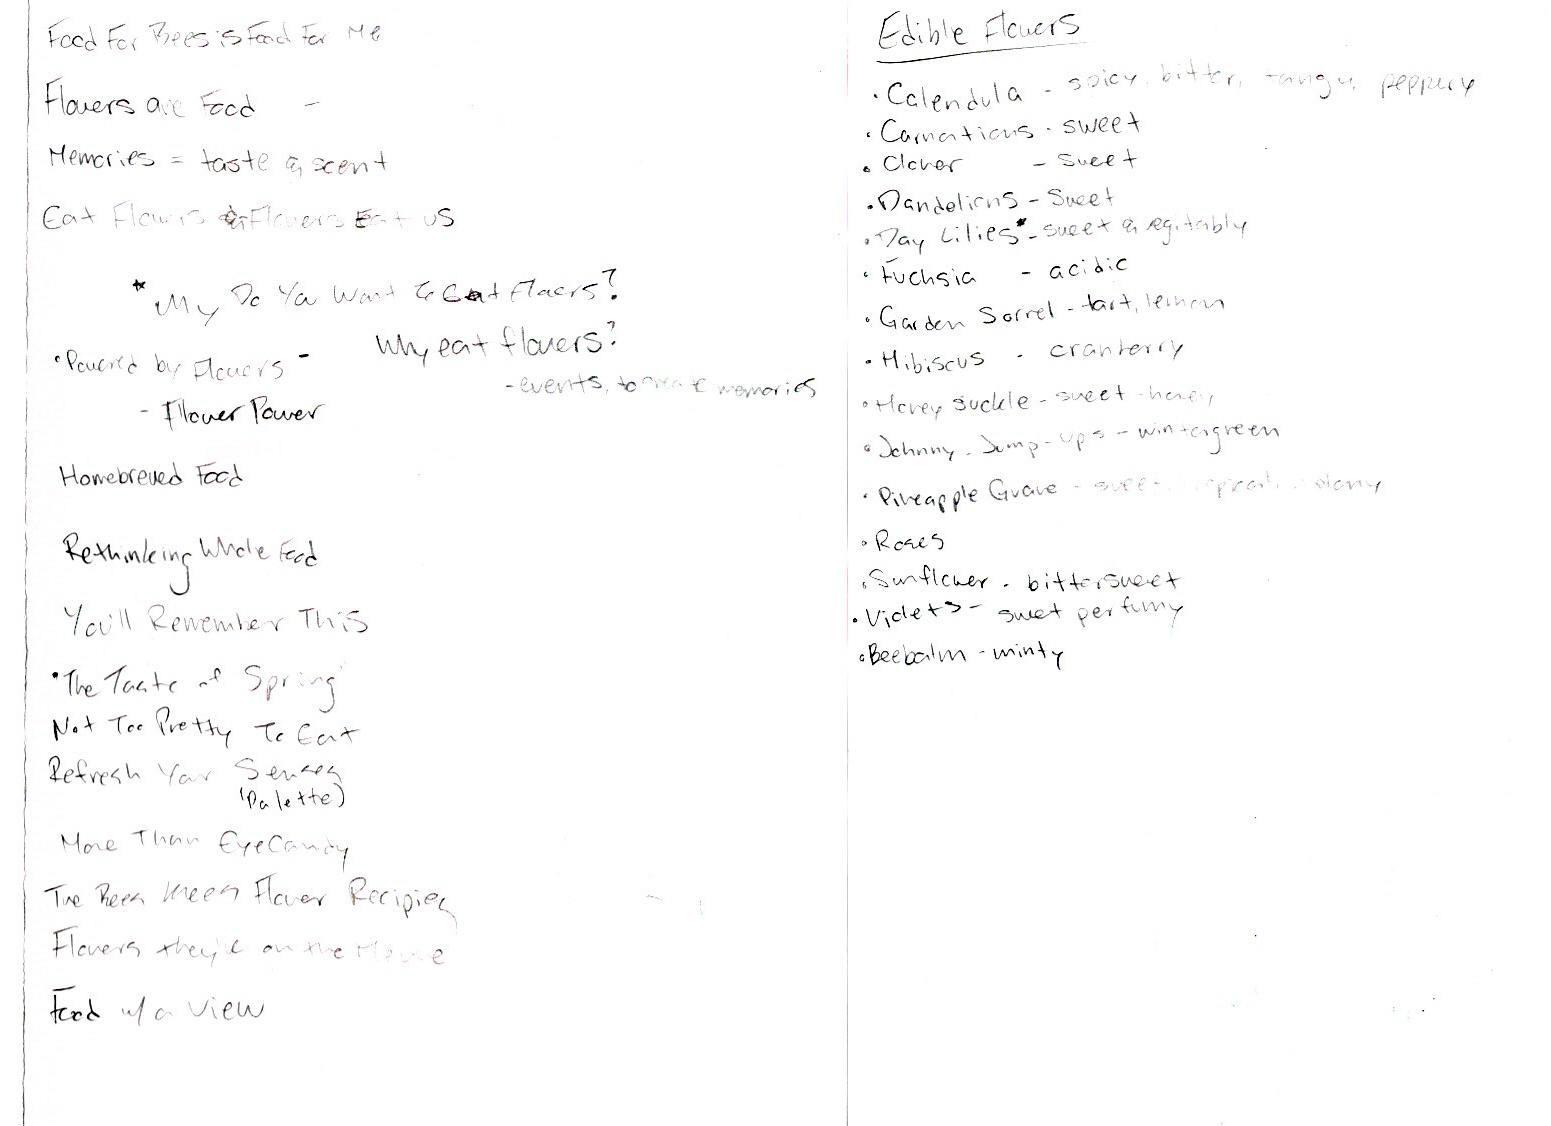 Food For Bees is Food For Me
Flowers are Food -
Memories = taste & scent
Eat Flowers & Flowers Eat us
* Why Do You Want To Eat Flowers?
Why eat flowers?
- events, to create memories
• Powered by Flowers -
- Flower Power
Homebrewed Food
Rethinking Whole Food
You'll Remember This
• The Taste of Spring
Not Too Pretty To Eat
Refresh Your Senses
(Palette)
More Than Eye Candy
The Bees Knees Flower Recipies
Flowers they're on the Menu
Food w/ a View
Edible Flowers
• Calendula - spicy, bitter, tangy, peppery
• Carnations - sweet
• Clover - sweet
• Dandelions - Sweet
• Day Lilies* - sweet & vegitably
• Fuchsia - acidic
• Garden Sorrel - tart, lemon
• Hibiscus - cranberry
• Honey Suckle - sweet honey
• Johnny-Jump-Ups - wintergreen
• Pineapple Guave - sweet, tropical
• Roses
• Sunflower - bittersweet
• Violets - sweet perfumy
• Beebalm - minty